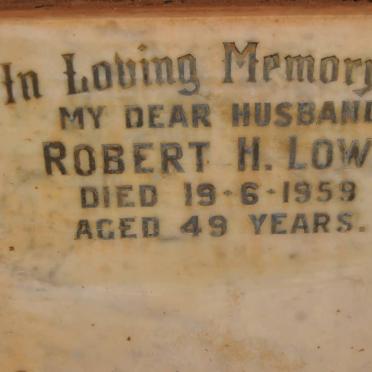 In Loving Memory
MY DEAR HUSBAND
ROBERT H. LOW
DIED 19-6-1959
AGED 49 YEARS.